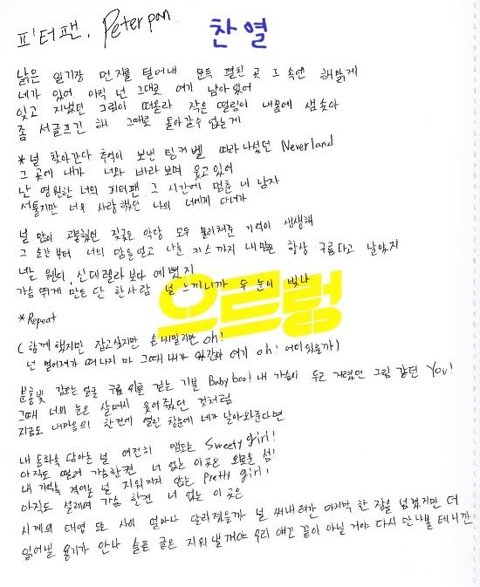 피터팬. Peterpan
찬열
낡은 일기장 먼지를 털어내 문득 펼친 곳 그 속엔 해맑게
네가 있어 아직 넌 그대로 여기 남아있어
잊고 지냈던 그림이 떠올라 작은 떨림이 내몸에 샘솟아
좀 서글프긴 해 그때로 돌아갈수 없는게
*널 찾아간다 추억이 보낸 팅커벨 따라 나섰던 Neverland
그 곳에 내가 너와 바라보며 웃고 있어
난 영원한 너의 피터팬 그 시간에 멈춘 네 남자
서툴지만 너무 사랑했던 나의 너에게 다녀가
널 많이 괴롭혔던 짖궂은 악당 모두 물리쳐준 기억이 생생해
그 순간부터 너의 맘을 얻고 나눈 키스까지 내맘은 항상 구름타고 날았지
너는 웬디, 신데렐라보다 예뻤지
가슴 뛰게 만든 단 한사람 널 느끼니까 두 눈이 빛나
으르렁
*Repeat
(함께 했지만 잡고싶지만 손 내밀지만 oh!
넌 멀어져가 떠나지 마 그때 내가 있잖아 여기 oh! 어디 있을까)
분홍빛 감도는 얼굴 구름 위를 걷는 기분 Baby boo! 내 가슴이 두근거렸던 그림 같던 You!
그때 너의 눈은 살며시 웃어줬던 것처럼
지금도 내마음의 한켠에 열린 창문에 네가 날아와준다면
내 동화속 담아논 널 여전히 맴도는 Sweety girl!
아직도 떨려 가슴한켠 너 없는 이곳은 외로운 섬!
내 기억속 적어논 널 지워지지 않는 Pretty girl!
아직도 설레여 가슴 한켠 너 없는 이 곳은
시계의 태엽 또는 사이 얼마나 달라졌을까 널 써내려간 마지막 한 장을 넘겼지만 더
읽어낼 용기가 안나 슬픈 글은 지워낼꺼야 우리 얘긴 끝이 아닐 거야 다시 만나볼 테니깐